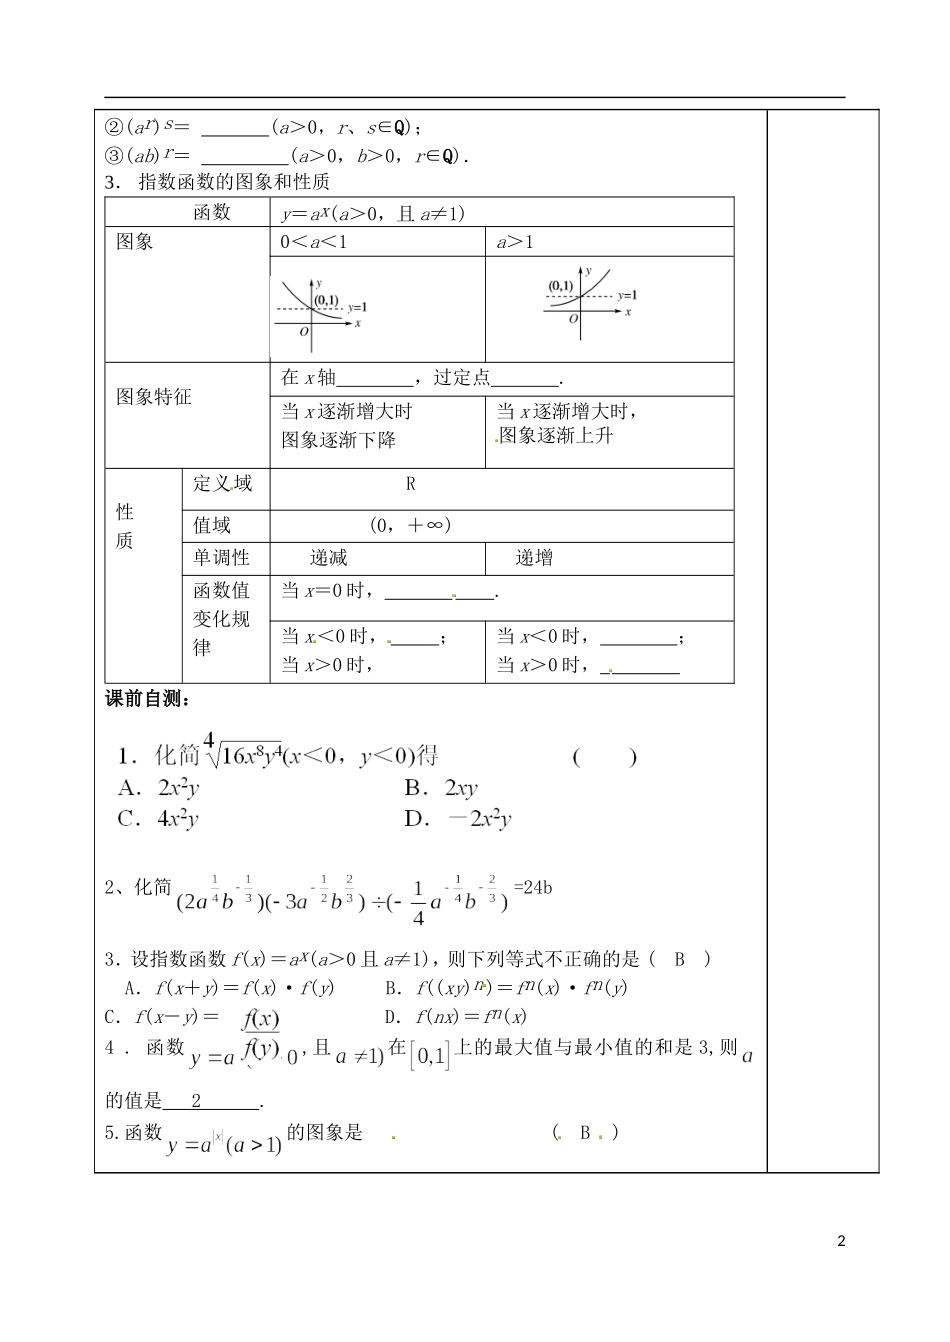 ②(a^r)^s＝ _______(a＞0，r、s∈Q)；
③(ab)^r＝ _________(a＞0，b＞0，r∈Q)．
3． 指数函数的图象和性质
函数 y＝a^x(a＞0，且 a≠1)
图象 0＜a＜1 a＞1
y (0,1) y=1 O x
y (0,1) y=1 O x
图象特征 在 x 轴________，过定点_______．
当 x 逐渐增大时 当 x 逐渐增大时，
图象逐渐下降 图象逐渐上升
性质 定义域 R
值域 (0，＋∞)
单调性 递减 递增
函数值变化规律 当 x＝0 时，___________．
当 x＜0 时，_____； 当 x＜0 时，________；
当 x＞0 时， 当 x＞0 时，________
课前自测：
1．化简\sqrt[4]{16x^8y^4}(x＜0，y＜0)得 ( )
A．2x²y B．2xy
C．4x²y D．－2x²y
2、化简(2a^{1/4}b^{-1/3})(-3a^{-1/2}b^{2/3})÷(-1/4 a^{-1/4}b^{-2/3})=24b
3．设指数函数 f(x)＝a^x(a＞0 且 a≠1)，则下列等式不正确的是 ( B )
A．f(x＋y)＝f(x)·f(y) B．f((xy)^n)＝f^n(x)·f^n(y)
C．f(x－y)＝ f(x)/f(y) D．f(nx)＝f^n(x)
4 ．函数 y=a 0 ,且 a≠1)在[0,1]上的最大值与最小值的和是 3,则 a
的值是 2 ．
5.函数 y=a^{|x|}(a>1)的图象是 ( B )
2